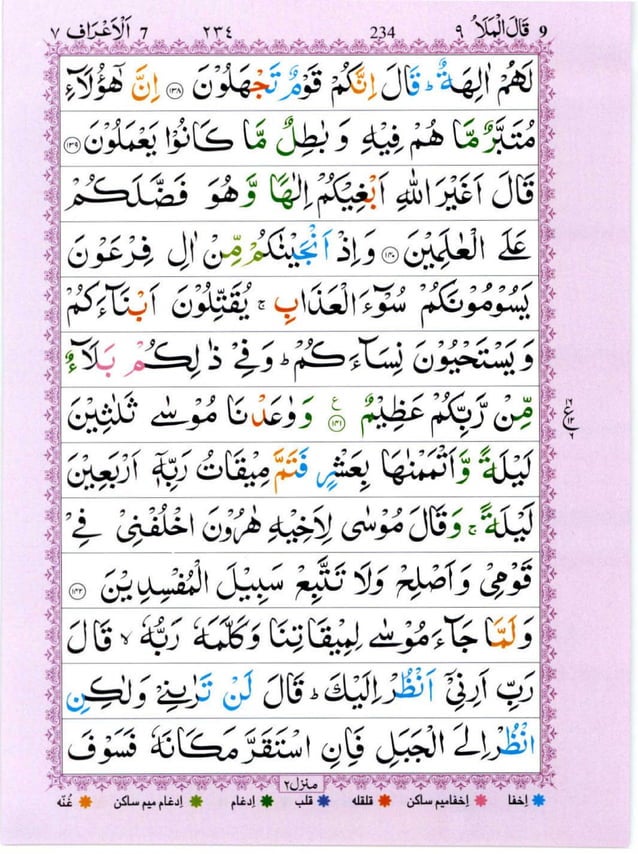 9 قَالَ الْمَلَاُ ٩ 234 ٢٣٤ 7 اَلْاَعْرَاف ٧
لَهُمْ اٰلِهَةٌ ؕ قَالَ اِنَّكُمْ قَوْمٌ تَجْهَلُوْنَ ﴿۱۳۸﴾ اِنَّ هٰۤؤُلَآءِ
مُتَبَّرٌ مَّا هُمْ فِيْهِ وَ بٰطِلٌ مَّا كَانُوْا يَعْمَلُوْنَ ﴿۱۳۹﴾
قَالَ اَغَيْرَ اللّٰهِ اَبْغِيْكُمْ اِلٰهًا وَّ هُوَ فَضَّلَكُمْ
عَلَى الْعٰلَمِيْنَ ﴿۱۴۰﴾ وَاِذْ اَنْجَيْنٰكُمْ مِّنْ اٰلِ فِرْعَوْنَ
يَسُوْمُوْنَكُمْ سُوْٓءَ الْعَذَابِ ۚ يُقَتِّلُوْنَ اَبْنَآءَكُمْ
وَ يَسْتَحْيُوْنَ نِسَآءَكُمْ ؕ وَفِيْ ذٰلِكُمْ بَلَآءٌ
مِّنْ رَّبِّكُمْ عَظِيْمٌ ﴿۱۴۱﴾ ع وَ وٰعَدْنَا مُوْسٰى ثَلٰثِيْنَ
لَيْلَةً وَّ اَتْمَمْنٰهَا بِعَشْرٍ فَتَمَّ مِيْقَاتُ رَبِّهٖۤ اَرْبَعِيْنَ
لَيْلَةً ۚ وَقَالَ مُوْسٰى لِاَخِيْهِ هٰرُوْنَ اخْلُفْنِيْ فِيْ
قَوْمِيْ وَ اَصْلِحْ وَلَا تَتَّبِعْ سَبِيْلَ الْمُفْسِدِيْنَ ﴿۱۴۲﴾
وَلَمَّا جَآءَ مُوْسٰى لِمِيْقَاتِنَا وَكَلَّمَهٗ رَبُّهٗ ۙ قَالَ
رَبِّ اَرِنِيْۤ اَنْظُرْ اِلَيْكَ ؕ قَالَ لَنْ تَرٰىنِيْ وَلٰكِنِ
انْظُرْ اِلَى الْجَبَلِ فَاِنِ اسْتَقَرَّ مَكَانَهٗ فَسَوْفَ
منزل ۲
اِخفا اِخفامیم ساکن قلقله قلب اِدغام اِدغام میم ساکن غُنّه